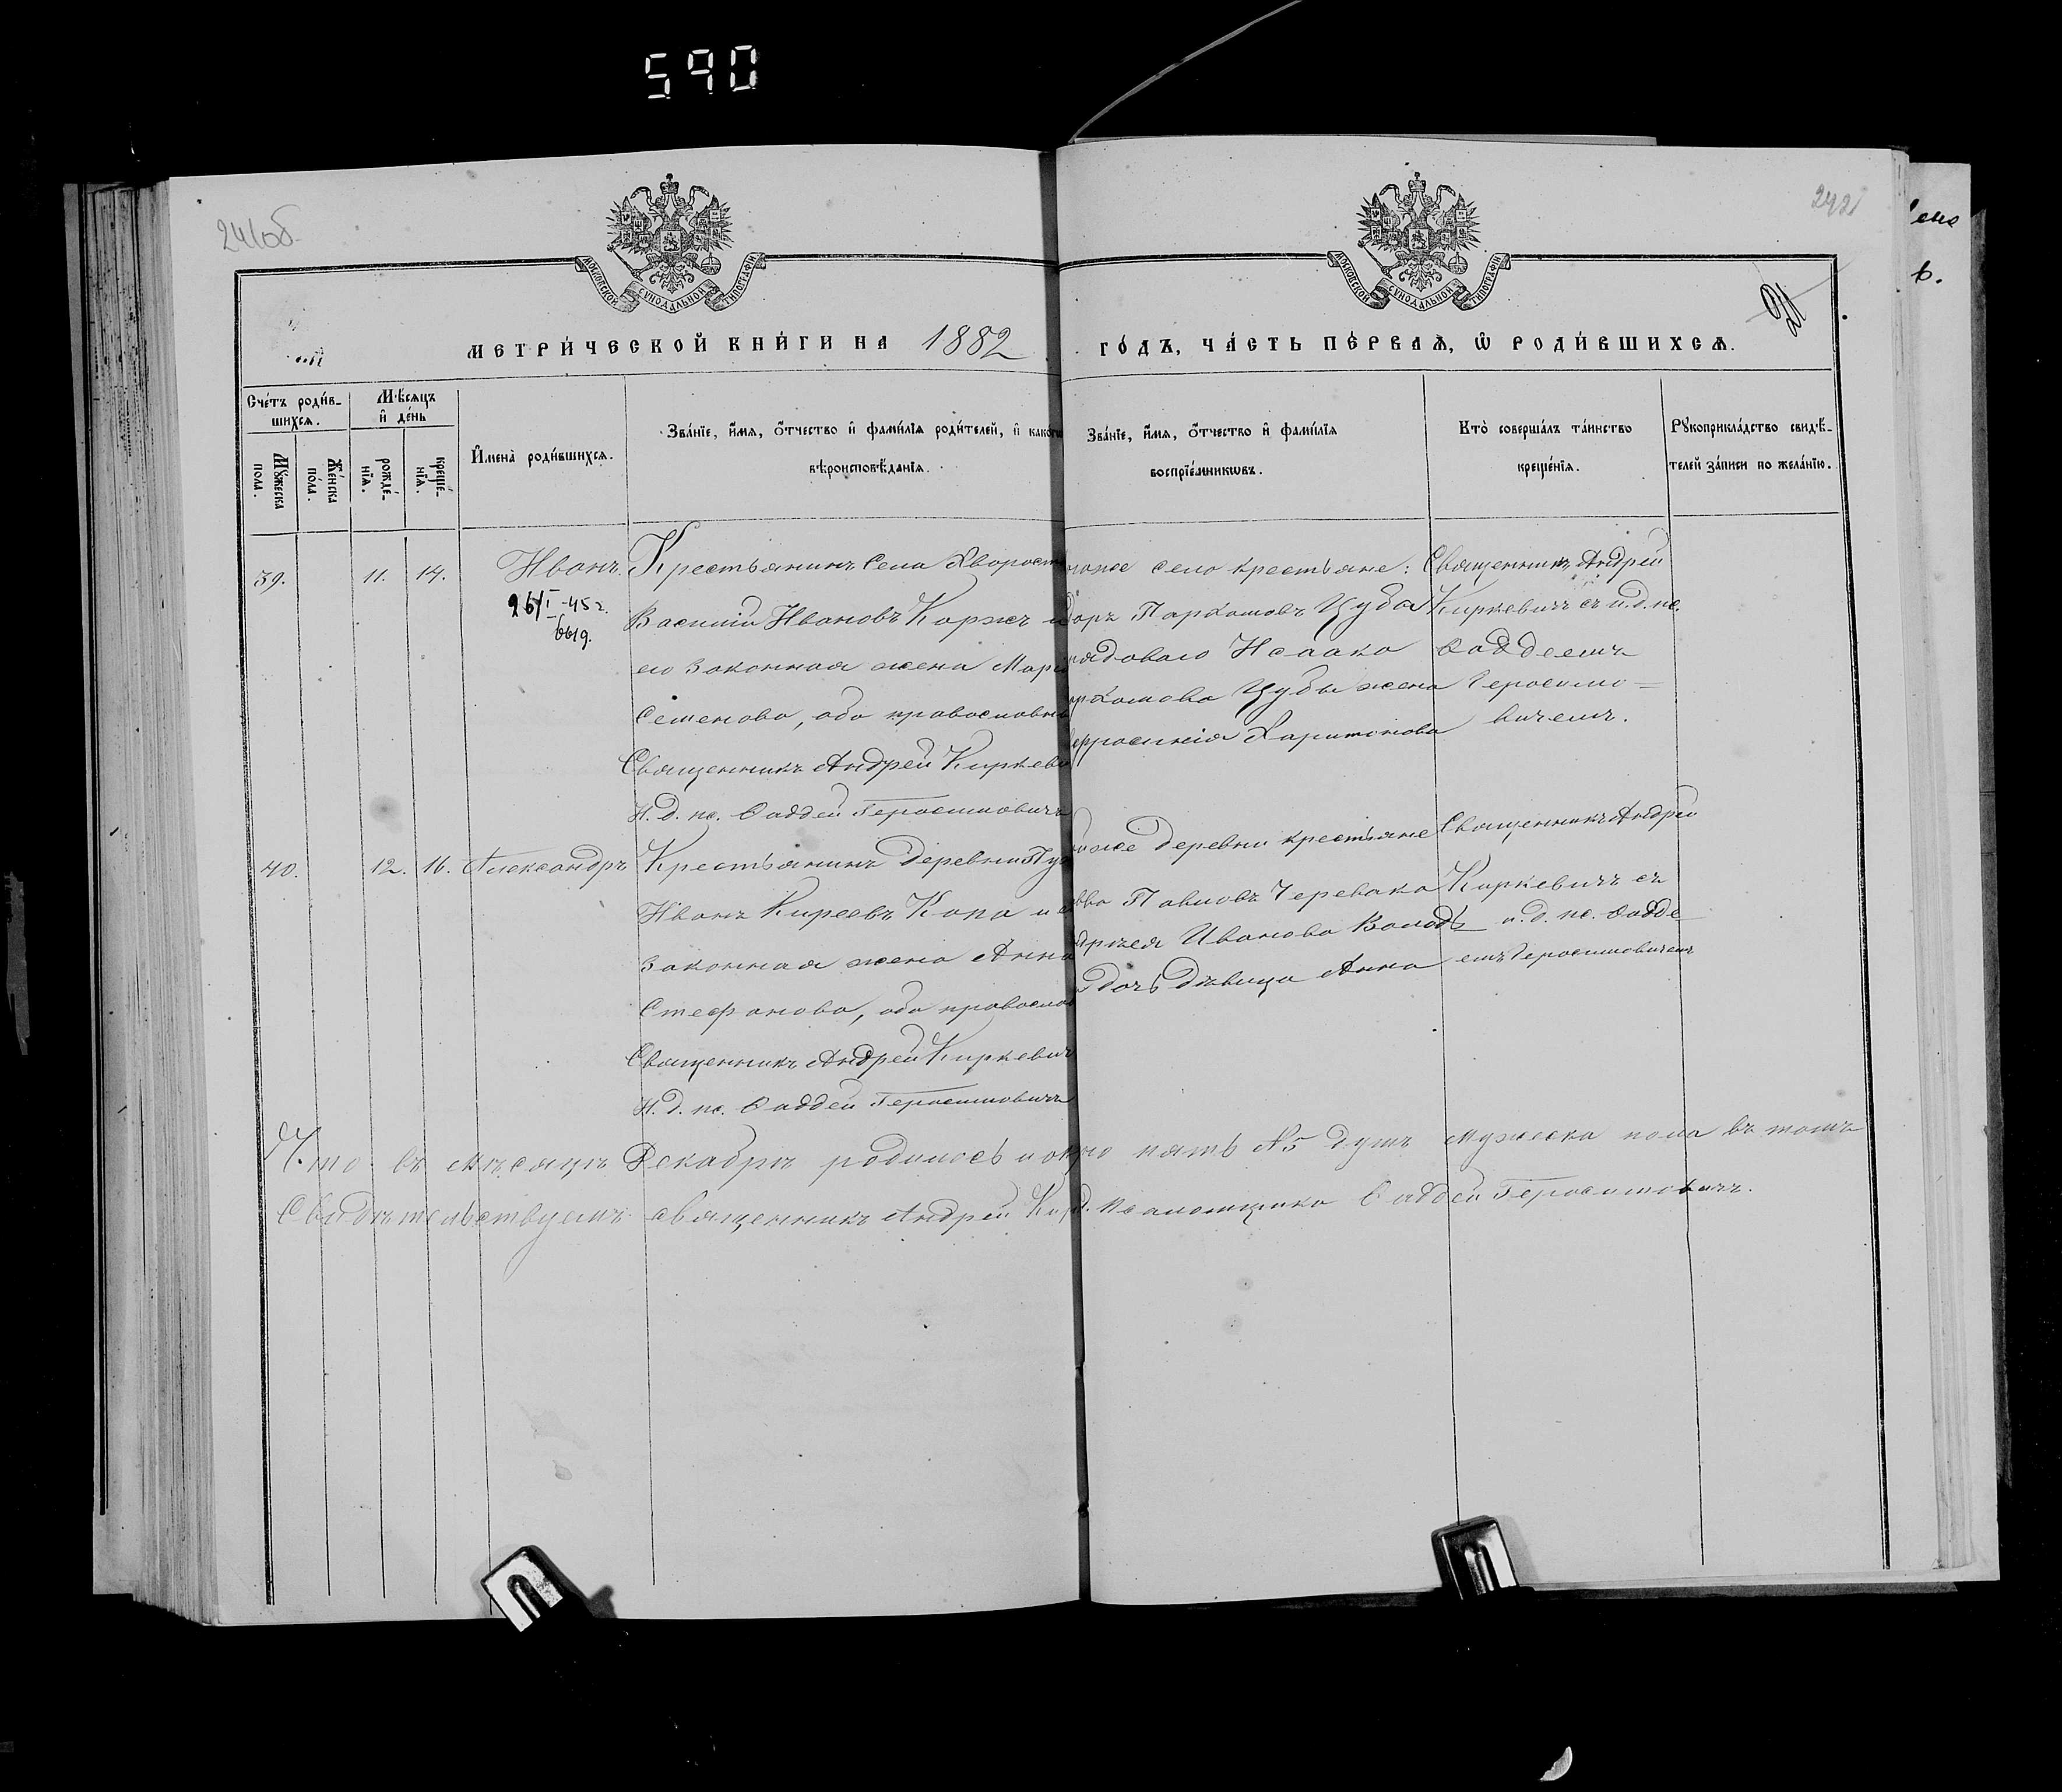 590
241об
242
МОСКОВСКОЙ СѴНОДАЛЬНОЙ ТИПОГРАФІИ
МОСКОВСКОЙ СѴНОДАЛЬНОЙ ТИПОГРАФІИ
МЕТРИ́ЧЕСКОЙ КНИ́ГИ НА 1882 ГО́ДЪ, ЧА́СТЬ ПЕ́РВАѦ, Ѡ҆ РОДИ́ВШИХСѦ.
Сче́тъ роди́в-
шихсѧ.
Мѹ́жеска пола.
Же́нска по́ла.
Мѣ́сѧцъ
и҆ де́нь
рожде́-
нїѧ.
креще́-
нїѧ.
И҆мена̀ роди́вшихсѧ.
Зва́нїе, и҆́мѧ, ѻ҆́тчество и҆ фами́лїѧ роди́телей, и҆ како́гѡ
вѣроисповѣ́данїѧ.
Зва́нїе, и҆́мѧ, ѻ҆́тчество и҆ фами́лїѧ
воспрїе́мникѡвъ.
Кто̀ соверша́лъ та́инство
креще́нїѧ.
Рѹкоприкла́дство свидѣ́-
телей за́писи по жела́нїю.
39. 11. 14. Иванъ.
26/I-45 г.
выд.
Крестьянинъ Села Хворост
Василій Ивановъ Коржъ и
его законная жена Марі
Семенова, оба православн
Священникъ Андрей Киркеви
И. д. пс. Фаддей Герасимовичъ
тогоже село крестьяне:
доръ Пархомовъ Цуба
рядоваго Исаака
архомова Цубы жена
Харитонова
Священникъ Андрей
Киркевичъ съ и. д. пс.
Фаддеемъ
Герасимо-
вичемъ.
40. 12. 16. Александръ
Крестьянинъ деревни
Иванъ Киреевъ Копа и е
законная жена Анна
Стефанова, оба православ
Священникъ Андрей Киркевич
И. д. пс. Фаддей Герасимовичъ
тойже деревни крестьяне
Павловъ Черевака
Иванова
дочь дѣвица Анна
Священникъ Андрей
Киркевичъ съ
и. д. пс. Фадде
емъ Герасимовичемъ
Что въ мѣсяцѣ Декабрѣ родилось и окре но пять №5 душъ мужеска пола въ томъ
Свидѣтельствуемъ священникъ Андрей Кир д. псаломщика Фаддей Герасимовичъ.